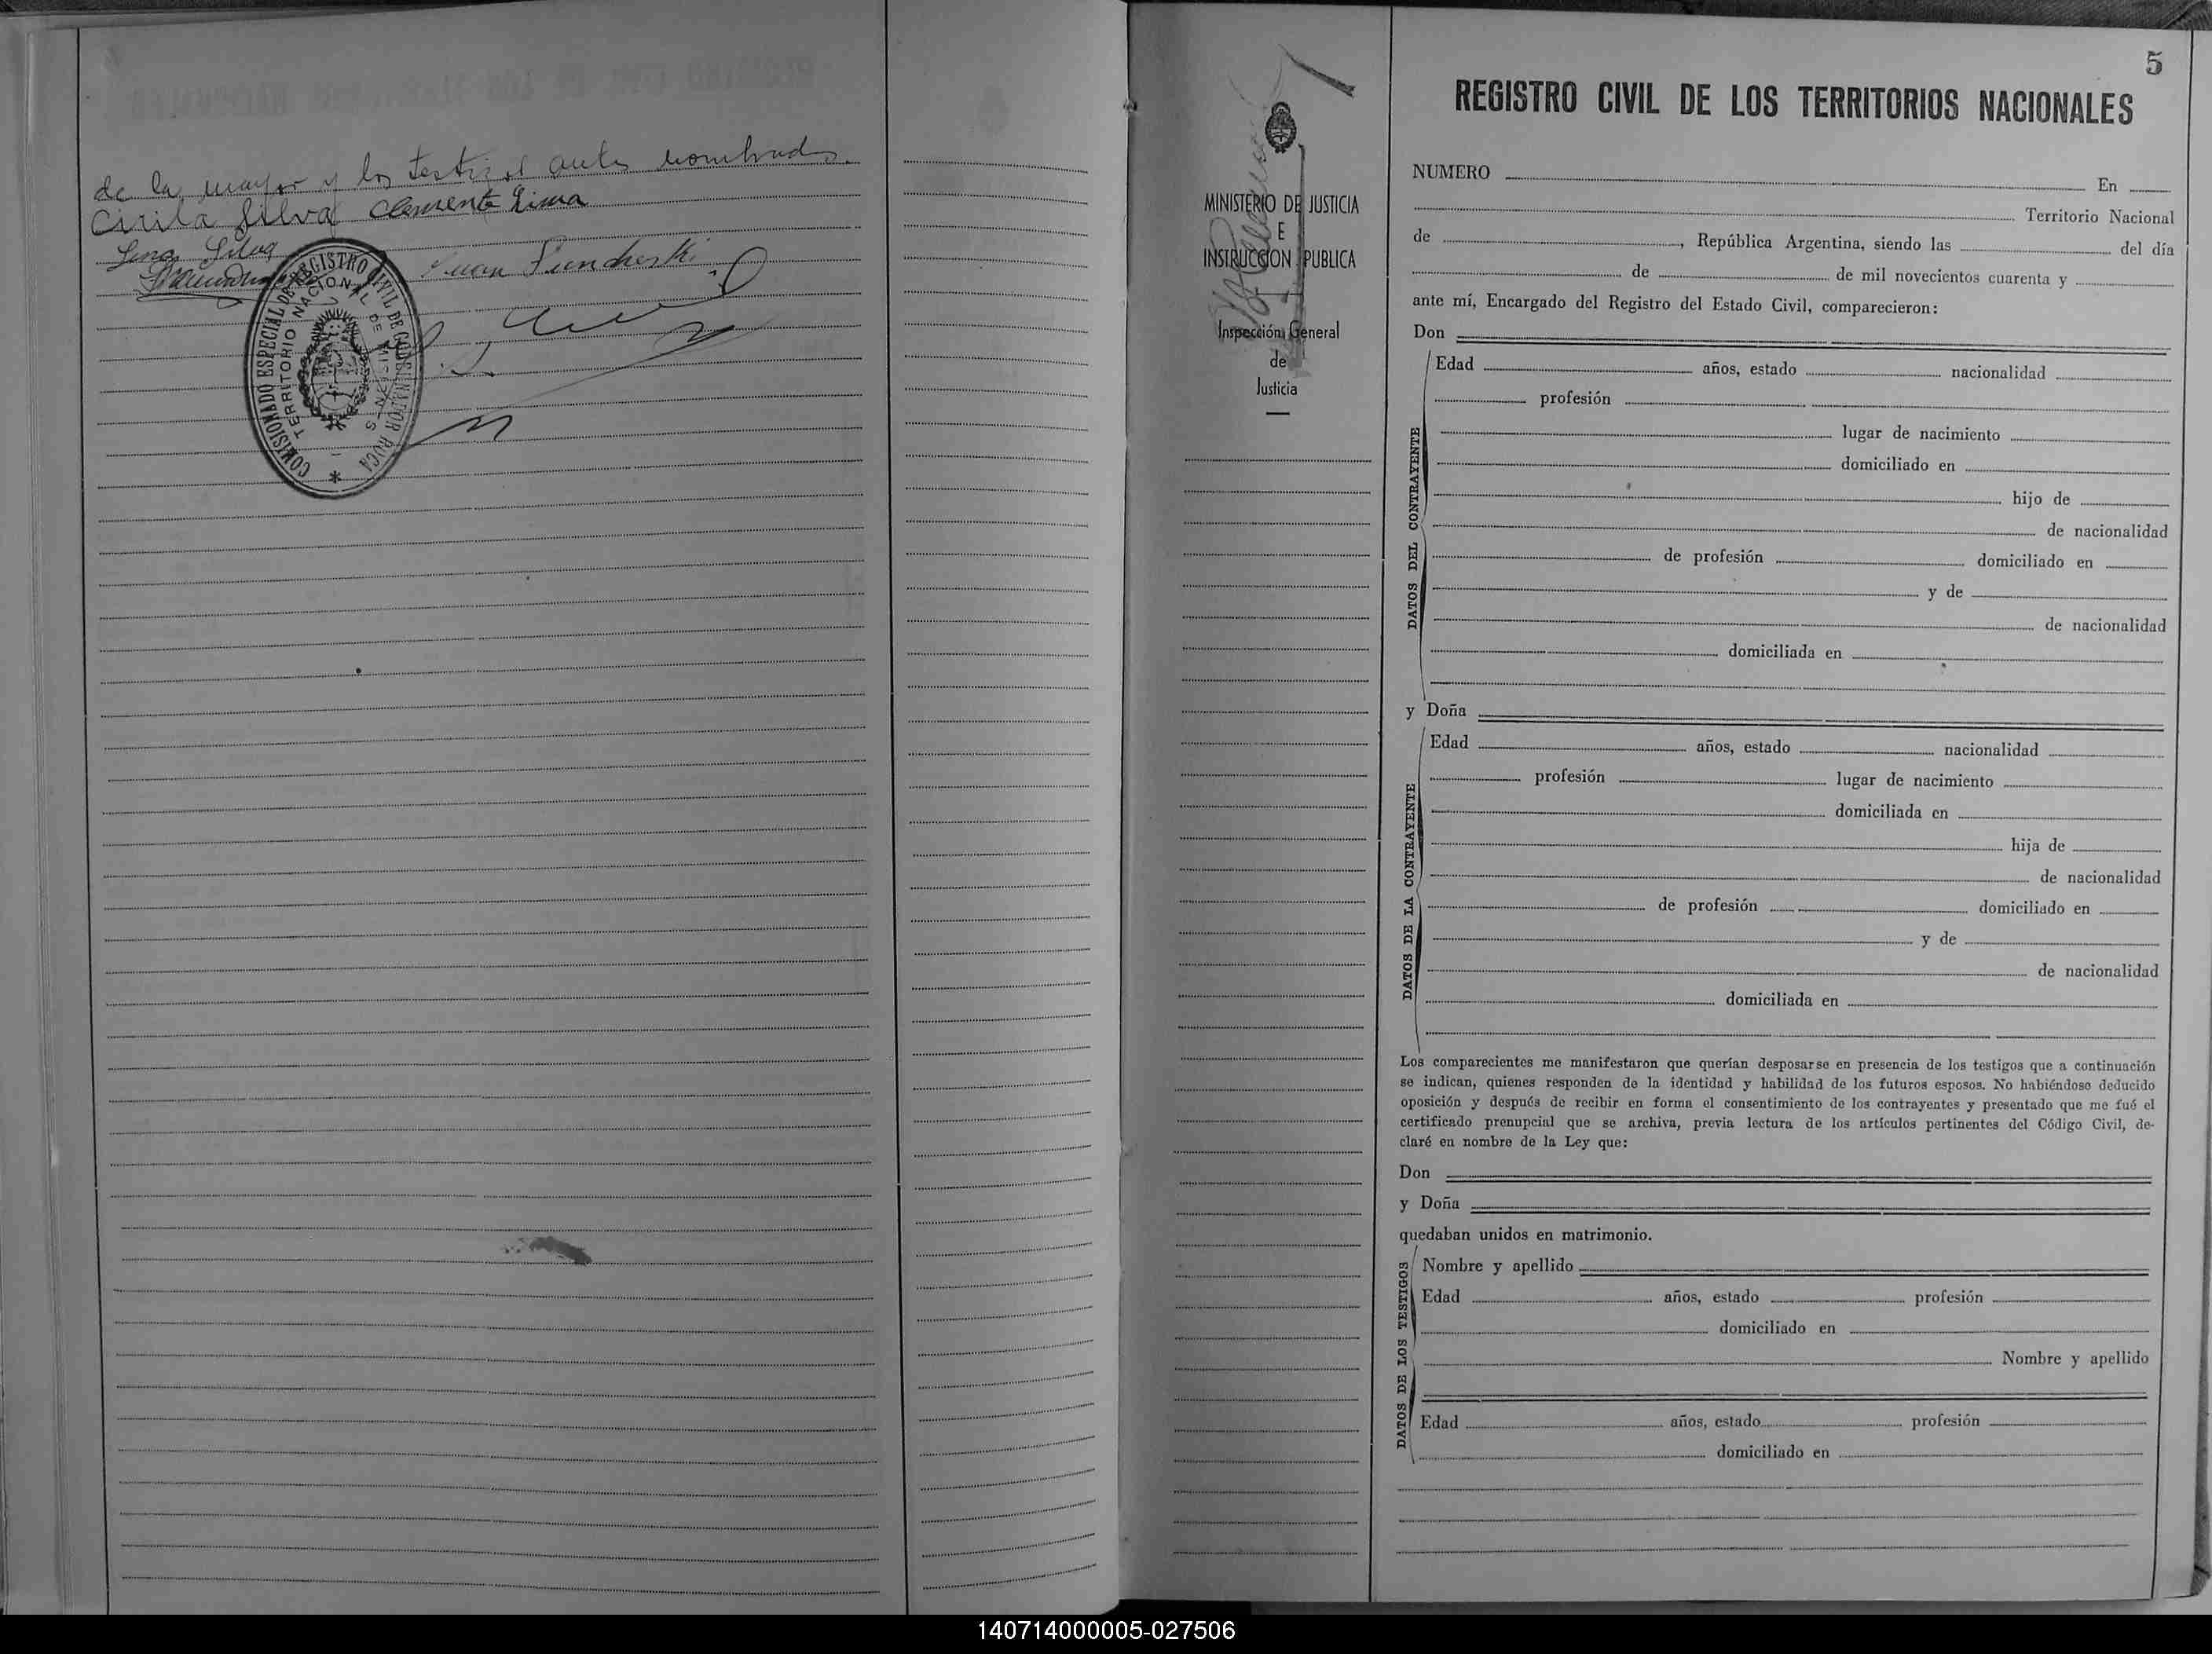 de la mayor y los testigos antes nombrados.
Cirila Silva Clemente Lima
Silva
Juan
COMISIONADO ESPECIAL DE REGISTRO CIVIL DE GOBERNADOR ROCA
TERRITORIO NACIONAL DE MISIONES
MINISTERIO DE JUSTICIA
E
INSTRUCCION PUBLICA
Inspección General
de
Justicia
5
REGISTRO CIVIL DE LOS TERRITORIOS NACIONALES
NUMERO En
Territorio Nacional
de , República Argentina, siendo las del día
de de mil novecientos cuarenta y
ante mí, Encargado del Registro del Estado Civil, comparecieron:
Don
DATOS DEL CONTRAYENTE
Edad años, estado nacionalidad
profesión
lugar de nacimiento
domiciliado en
hijo de
de nacionalidad
de profesión domiciliado en
y de
de nacionalidad
domiciliada en
y Doña
DATOS DE LA CONTRAYENTE
Edad años, estado nacionalidad
profesión lugar de nacimiento
domiciliada en
hija de
de nacionalidad
de profesión domiciliado en
y de
de nacionalidad
domiciliada en
Los comparecientes me manifestaron que querían desposarse en presencia de los testigos que a continuación
se indican, quienes responden de la identidad y habilidad de los futuros esposos. No habiéndose deducido
oposición y después de recibir en forma el consentimiento de los contrayentes y presentado que me fué el
certificado prenupcial que se archiva, previa lectura de los artículos pertinentes del Código Civil, de-
claré en nombre de la Ley que:
Don
y Doña
quedaban unidos en matrimonio.
DATOS DE LOS TESTIGOS
Nombre y apellido
Edad años, estado profesión
domiciliado en
Nombre y apellido
Edad años, estado profesión
domiciliado en
140714000005-027506